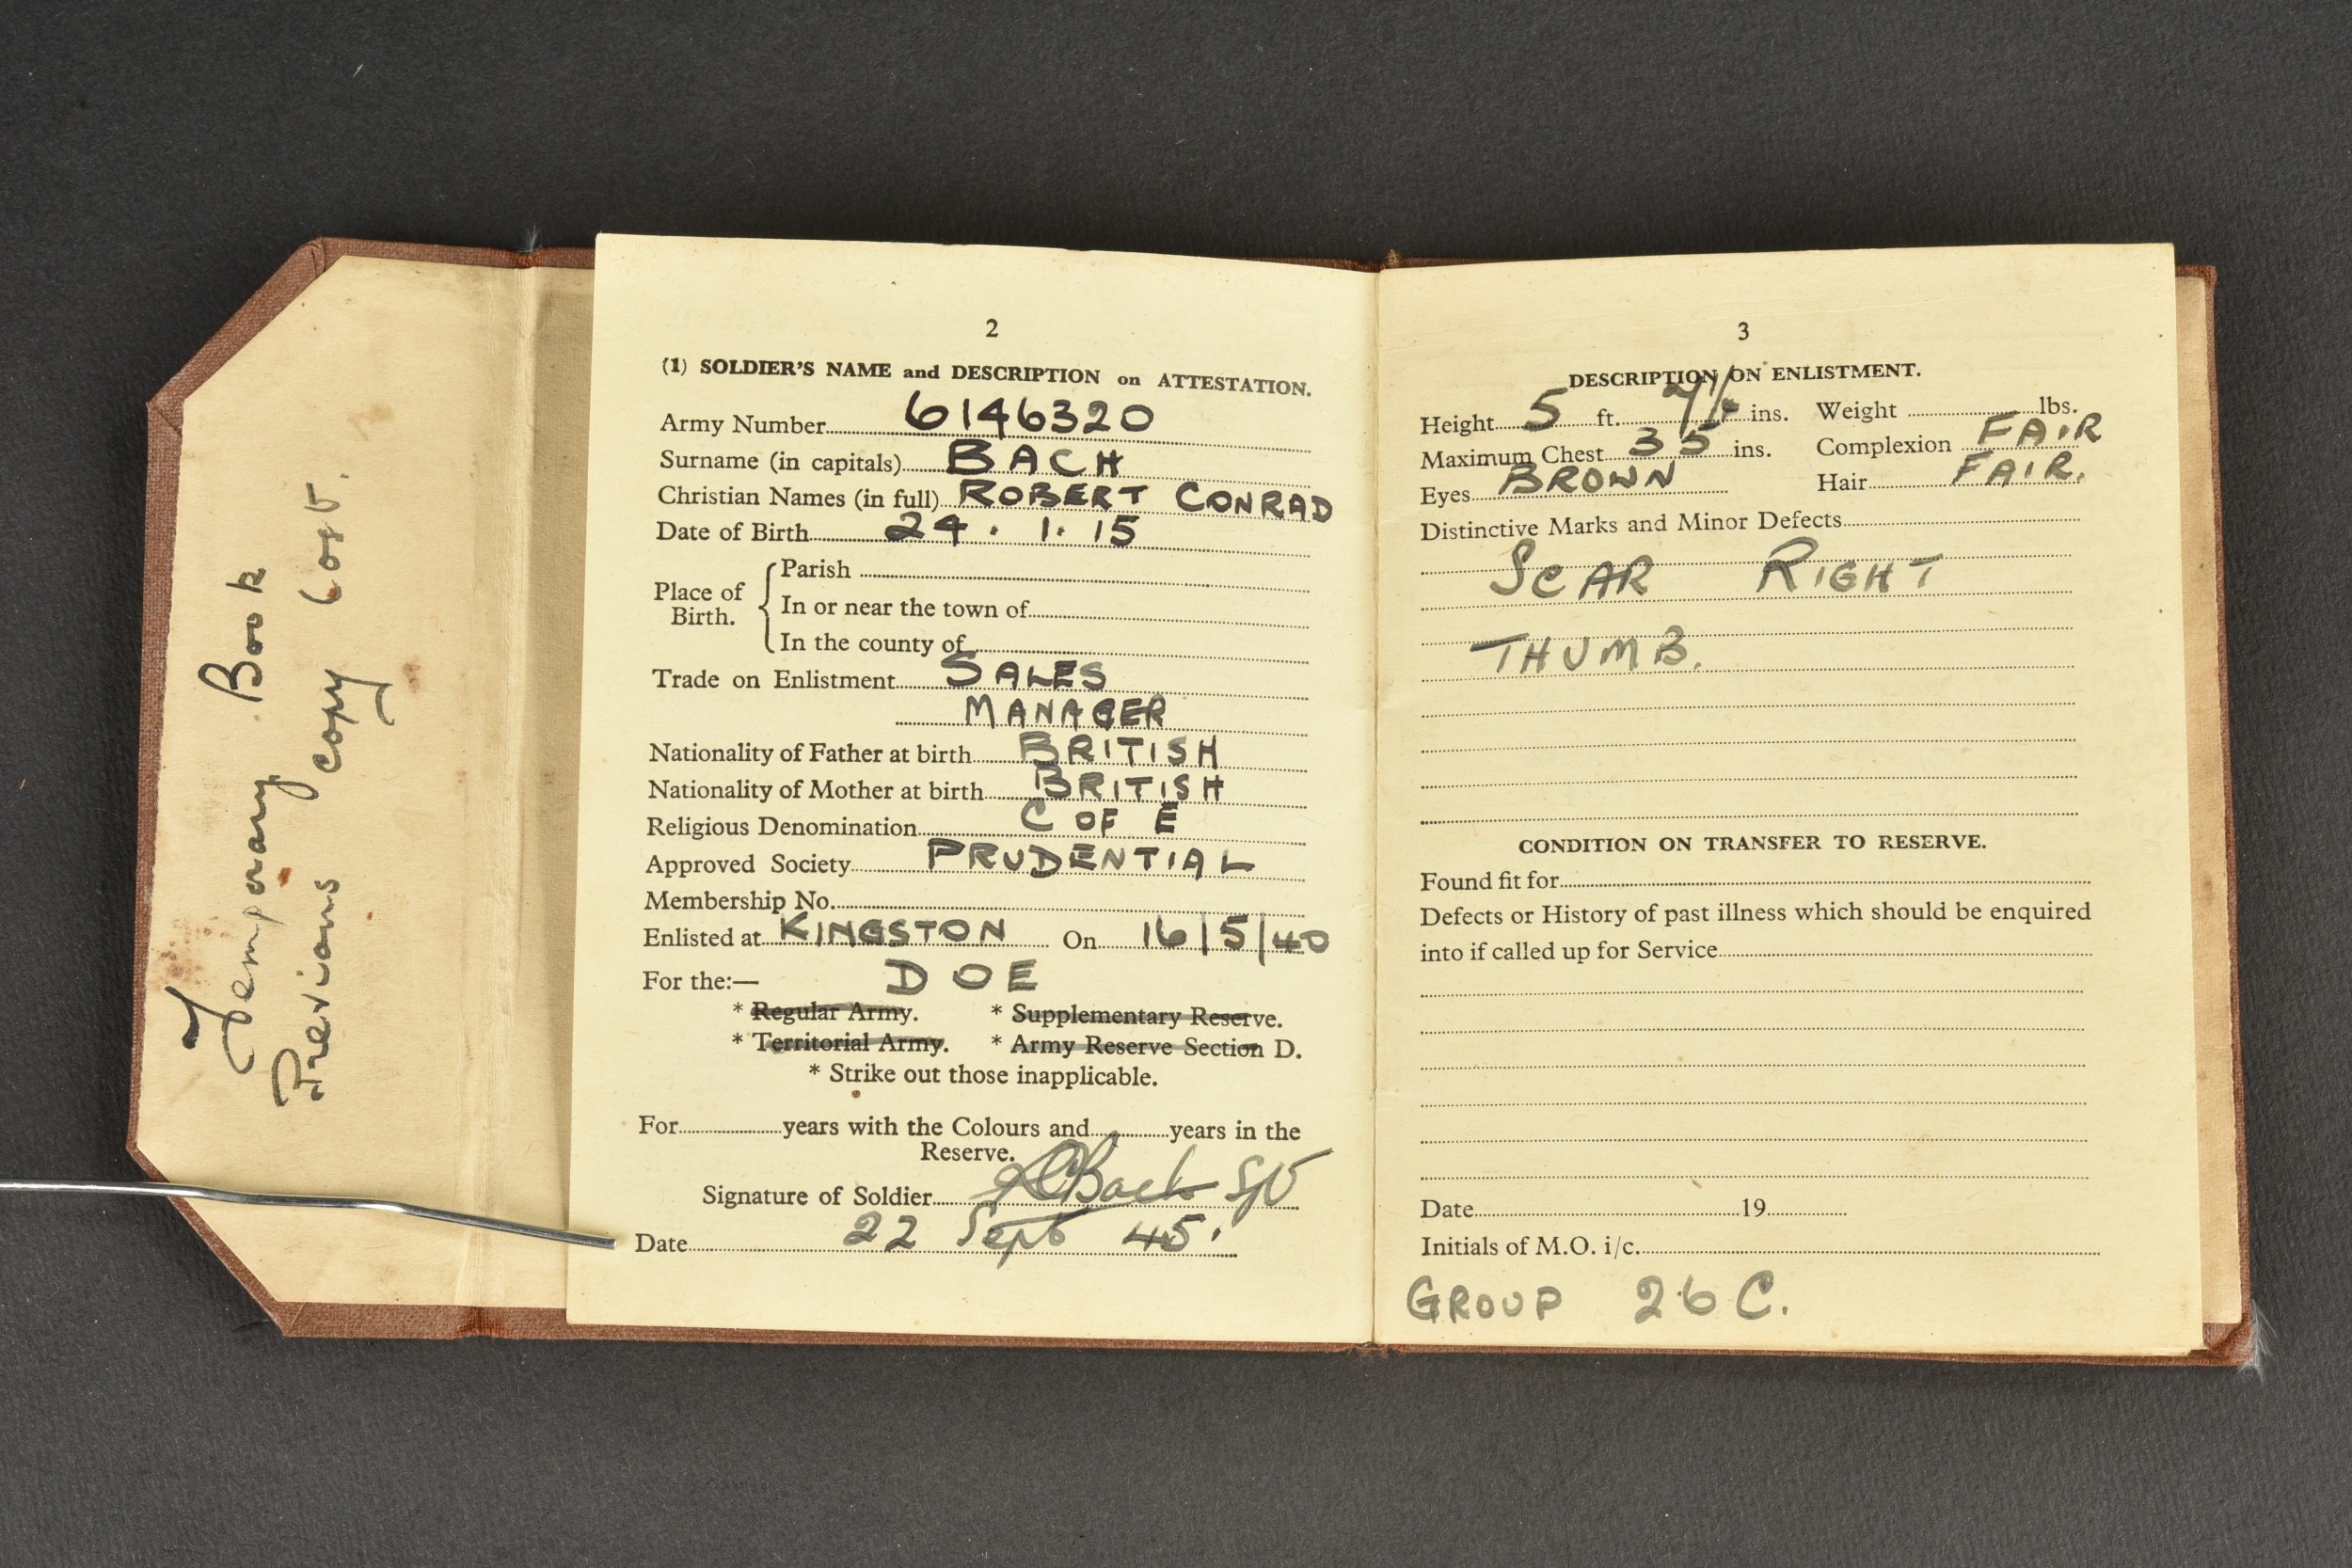 Temporary Book
Previous copy lost.
2
(1) SOLDIER'S NAME and DESCRIPTION on ATTESTATION.
Army Number 6146320
Surname (in capitals) BACH
Christian Names (in full) ROBERT CONRAD
Date of Birth 24. 1. 15
Place of Birth.
Parish
In or near the town of
In the county of
Trade on Enlistment SALES
MANAGER
Nationality of Father at birth BRITISH
Nationality of Mother at birth BRITISH
Religious Denomination C OF E
Approved Society PRUDENTIAL
Membership No.
Enlisted at KINGSTON On 16/5/40
For the:— D O E
* Regular Army. * Supplementary Reserve.
* Territorial Army. * Army Reserve Section D.
* Strike out those inapplicable.
For years with the Colours and years in the
Reserve.
Signature of Soldier RCBach
Date 22 Sept 45.
3
DESCRIPTION ON ENLISTMENT.
Height 5 ft. ins. Weight lbs.
Maximum Chest 35 ins. Complexion FAIR
Eyes BROWN Hair FAIR.
Distinctive Marks and Minor Defects
SCAR RIGHT
THUMB.
CONDITION ON TRANSFER TO RESERVE.
Found fit for
Defects or History of past illness which should be enquired
into if called up for Service
Date 19
Initials of M.O. i/c.
GROUP 26 C.